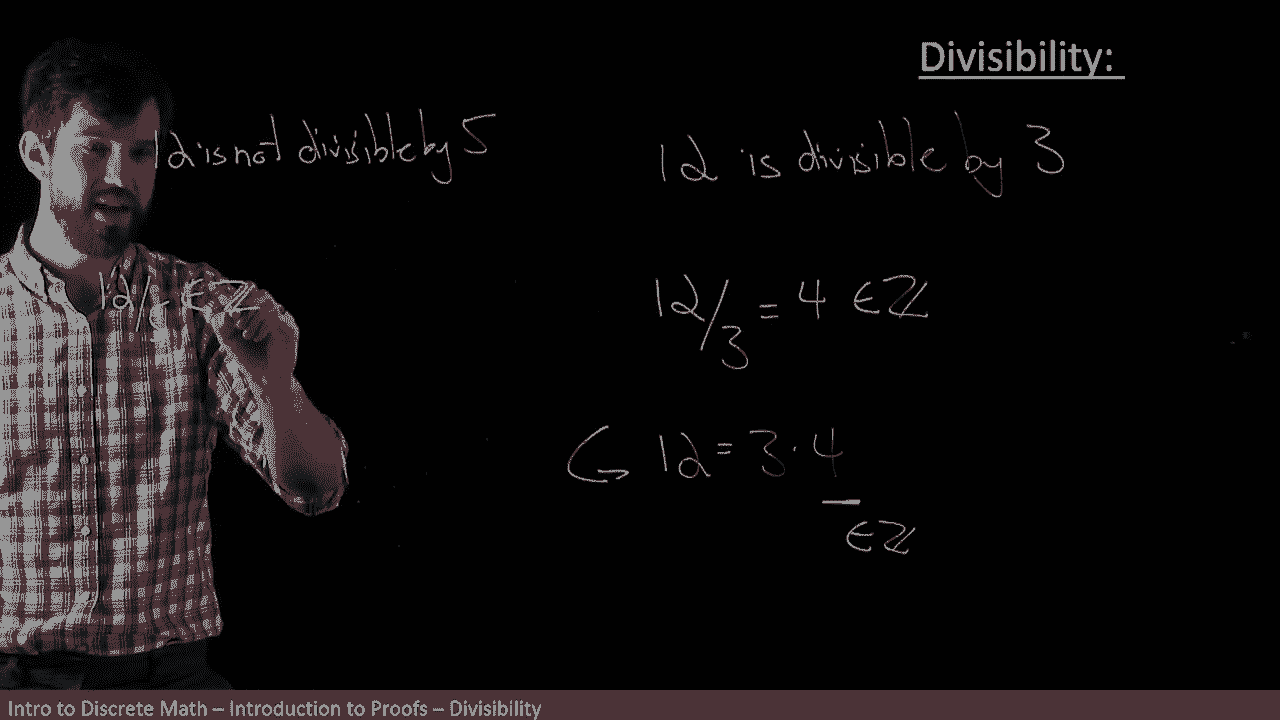 Divisibility:
12 is not divisible by 5
12 is divisible by 3
12/5 ∈ ℤ
12/3 = 4 ∈ ℤ
12 = 3·4
∈ ℤ
Intro to Discrete Math – Introduction to Proofs – Divisibility